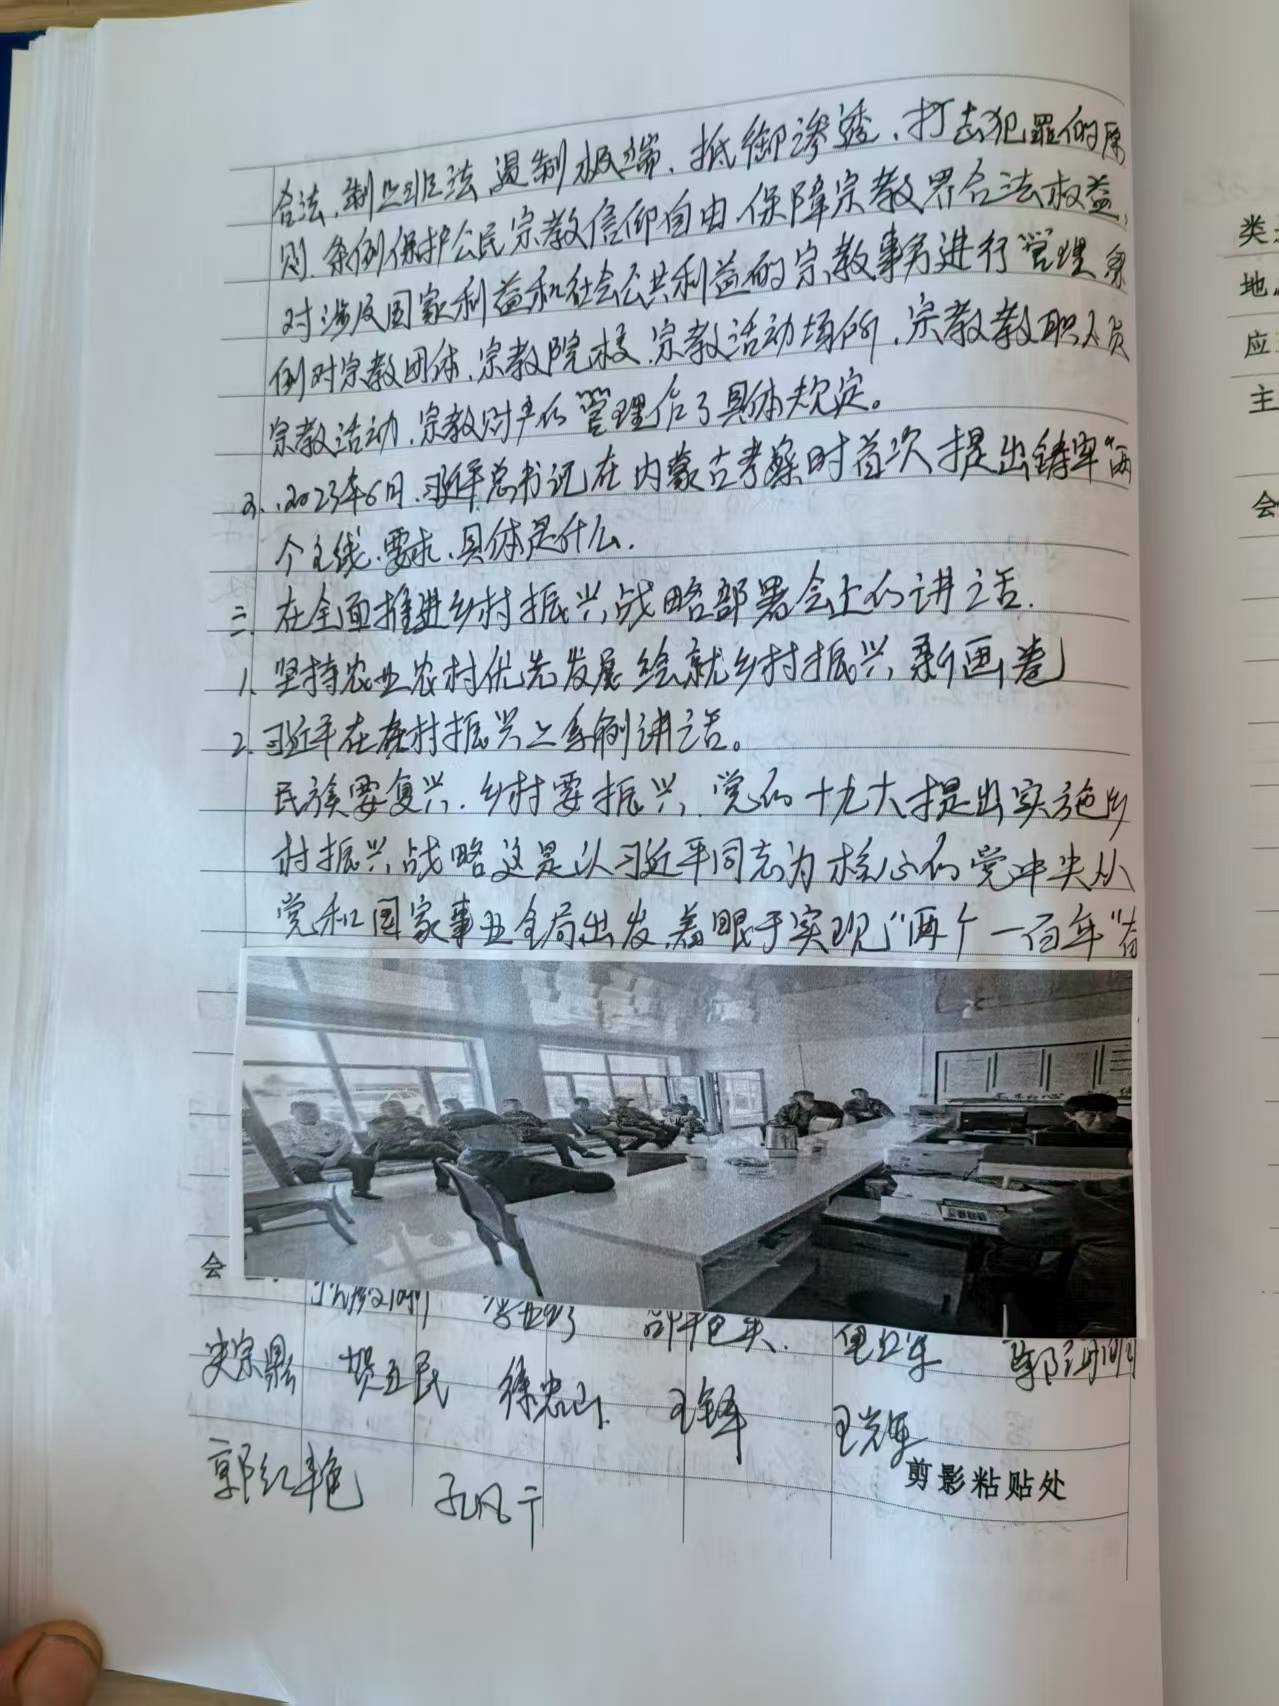 合法、制止非法、遏制极端、抵御渗透、打击犯罪的原
则.条例保护公民宗教信仰自由.保障宗教界合法权益,
对涉及国家利益和社会公共利益的宗教事务进行管理.条
例对宗教团体、宗教院校、宗教活动场所、宗教教职人员
宗教活动、宗教财产的管理给了具体规定。
2、2023年6月.习近平总书记在内蒙古考察时首次提出铸牢"两
个主线.要求.具体是什么.
三.在全面推进乡村振兴战略部署会上的讲话.
1.坚持农业农村优先发展绘就乡村振兴新画卷
2.习近平在农村振兴上系例讲话。
民族要复兴.乡村要振兴.党的十九大提出实施乡
村振兴战略这是以习近平同志为核心的党中央从
党和国家事业全局出发.着眼于实现"两个一百年"奋
会
宋宗鼎 贺立民 徐忠山 王军 王光军
郭红艳 孔凡宁
剪影粘贴处
类
地
应
主
会